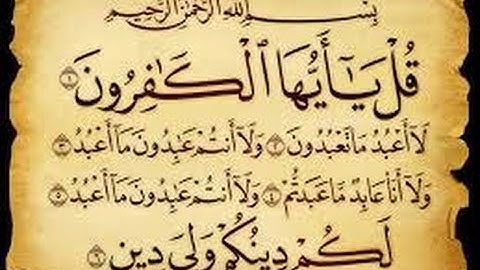 بِسْمِ اللَّهِ الرَّحْمَٰنِ الرَّحِيمِ
قُلْ يَا أَيُّهَا الْكَافِرُونَ ۝١
لَا أَعْبُدُ مَا تَعْبُدُونَ ۝٢ وَلَا أَنْتُمْ عَابِدُونَ مَا أَعْبُدُ ۝٣
وَلَا أَنَا عَابِدٌ مَا عَبَدْتُمْ ۝٤ وَلَا أَنْتُمْ عَابِدُونَ مَا أَعْبُدُ ۝٥
لَكُمْ دِينُكُمْ وَلِيَ دِينِ ۝٦